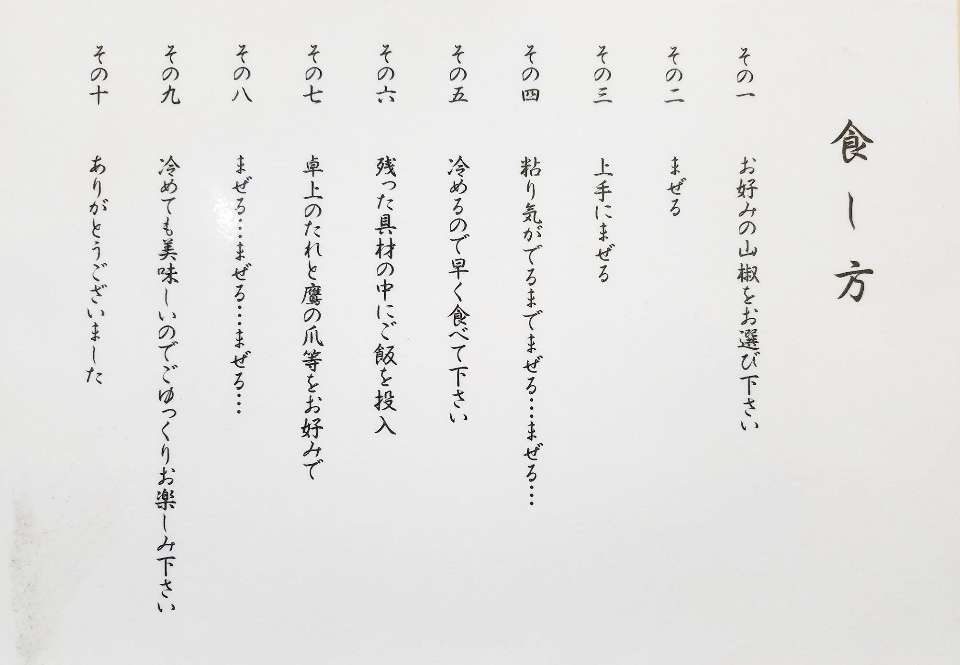 食し方
その一 お好みの山椒をお選び下さい
その二 まぜる
その三 上手にまぜる
その四 粘り気がでるまでまぜる…まぜる…
その五 冷めるので早く食べて下さい
その六 残った具材の中にご飯を投入
その七 卓上のたれと鷹の爪等をお好みで
その八 まぜる…まぜる…まぜる…
その九 冷めても美味しいのでごゆっくりお楽しみ下さい
その十 ありがとうございました